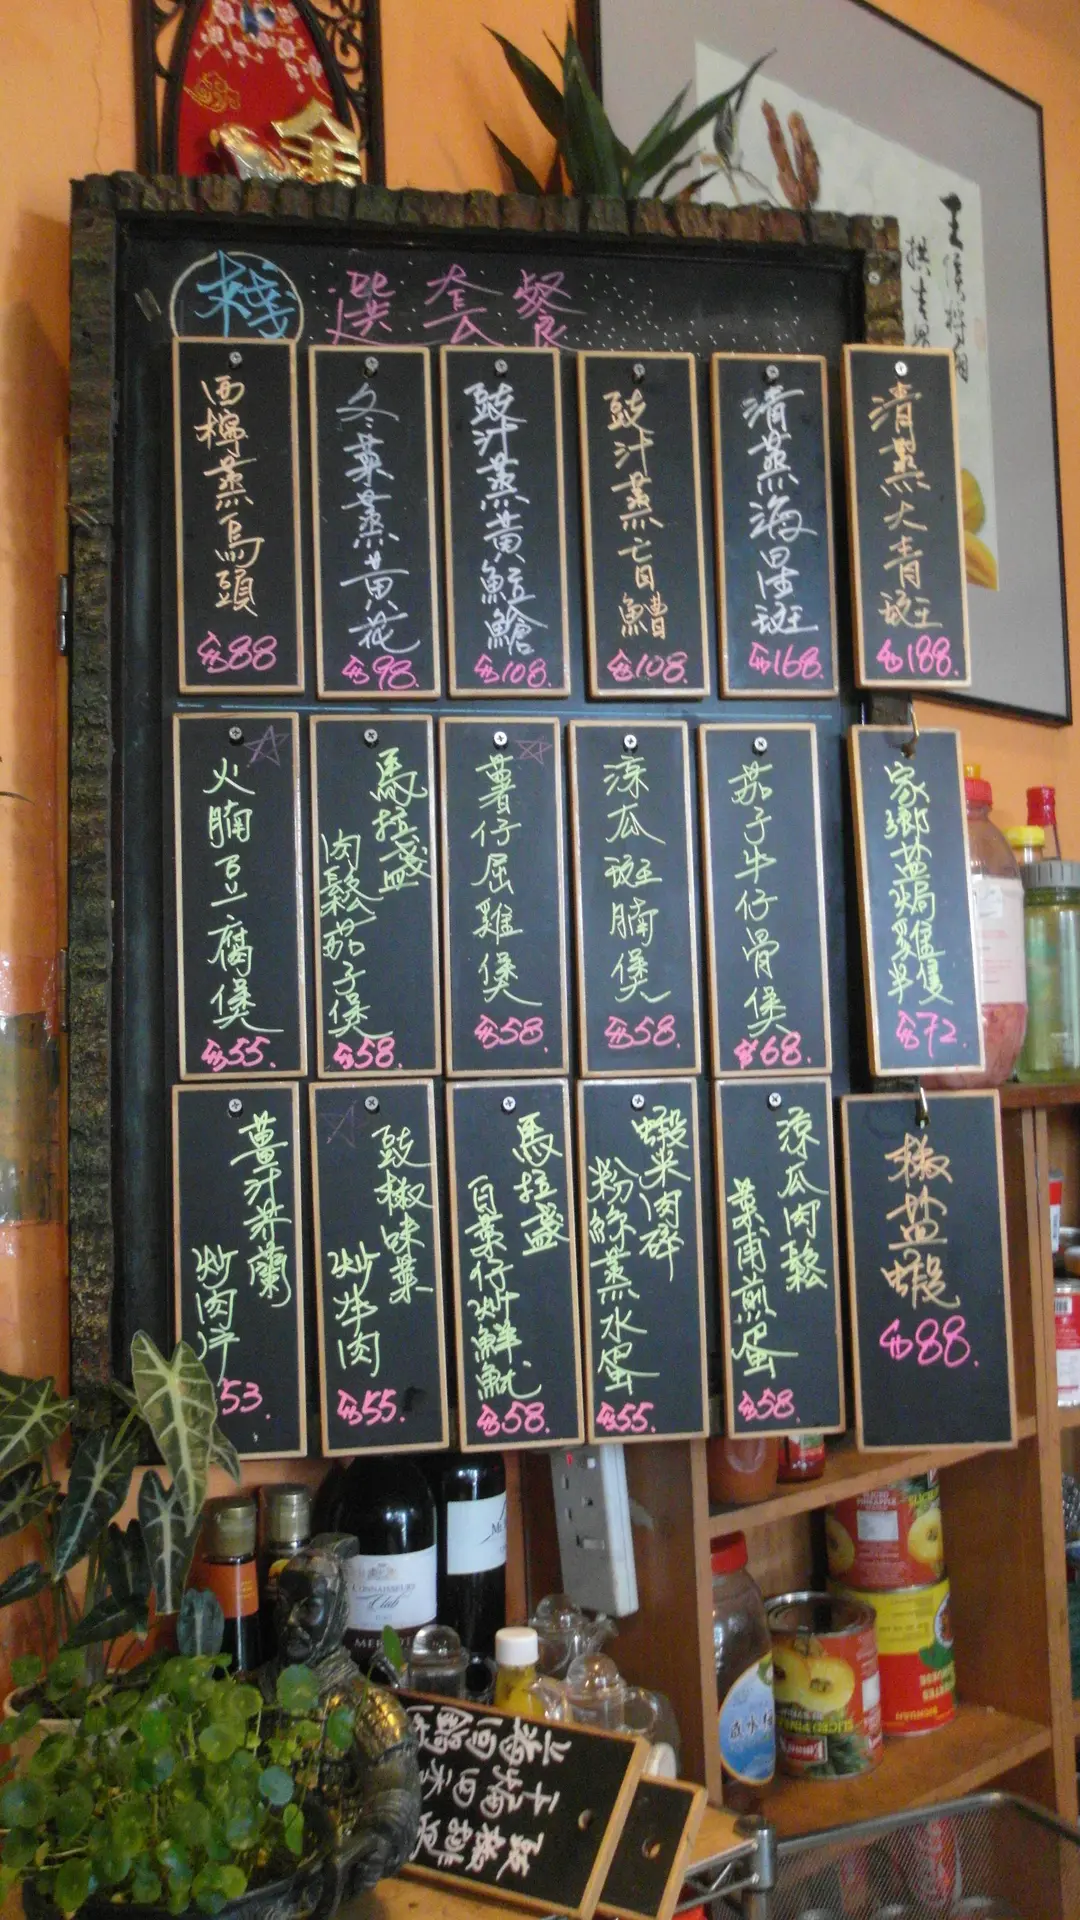 棧
選套餐
西檸蒸烏頭
$88
冬菜蒸黃花
$98.
豉汁蒸黃鮏鎗
$108.
豉汁蒸亡目鰽
$108.
清蒸海星斑
$168.
清蒸大青斑
$188.
火腩豆腐煲
$55.
馬拉盞
肉鬆茄子煲
$58.
薯仔屈雞煲
$58.
涼瓜斑腩煲
$58.
茄子牛仔骨煲
$68.
家鄉盐焗雞半隻
$72.
薑汁芥蘭
炒肉片
53.
豉椒味菜
炒牛肉
$55.
馬拉盞
白菜仔炒鮮魷
$58.
蝦米肉碎
粉絲蒸水蛋
$55.
涼瓜肉鬆
菜甫煎蛋
$58.
椒盐蝦
$88.
CONNAISSEURS
Club
SLICED PINEAPPLE